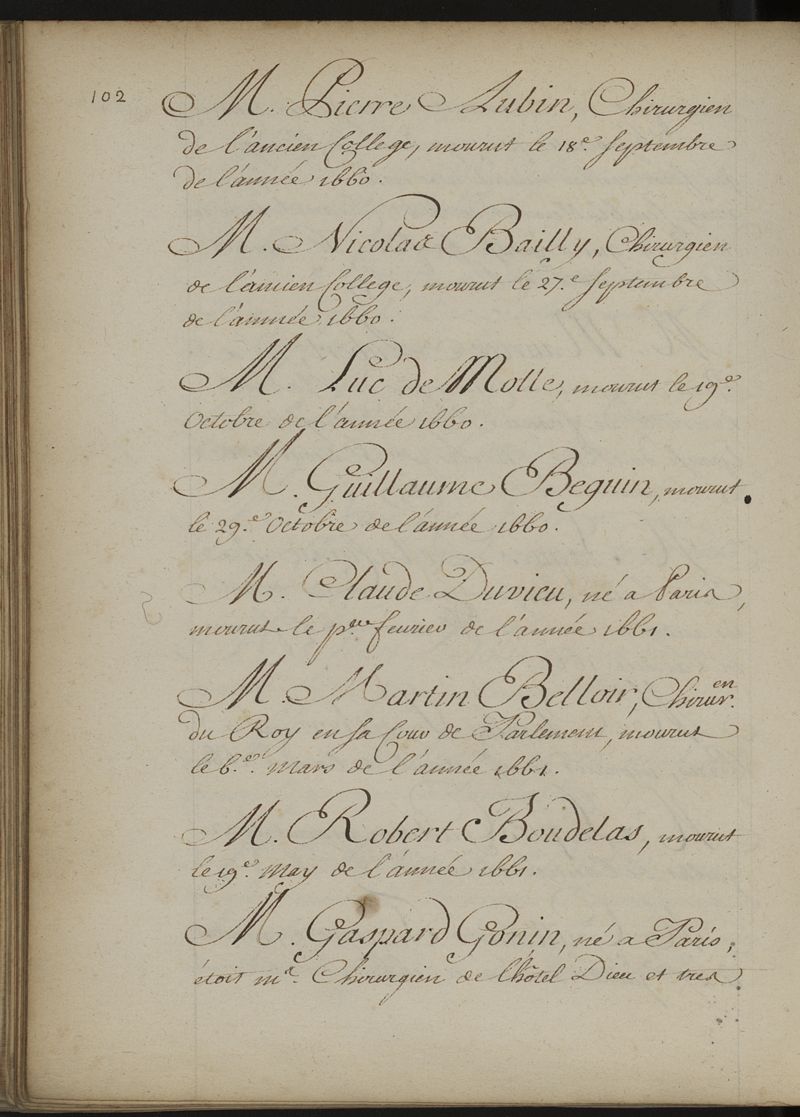 102
M. Pierre Aubin, Chirurgien
de l'ancien College, mourut le 18.e Septembre
de l'année 1660.
M. Nicolas Bailly, Chirurgien
de l'ancien College, mourut le 27.e Septembre
de l'année 1660.
M. Luc de Molle, mourut le 19.e
Octobre de l'année 1660.
M. Guillaume Beguin, mourut
le 29.e Octobre de l'année 1660.
M. Claude Duvieu, né a Paris,
mourut le p.er fevrier de l'année 1661.
M. Martin Belloir, Chirur.en
du Roy en sa Cour de Parlement, mourut
le 6.e Mars de l'année 1661.
M. Robert Boudelas, mourut
le 19.e May de l'année 1661.
M. Gaspard Gonin, né a Paris,
étoit m.e Chirurgien de l'hôtel Dieu et tres